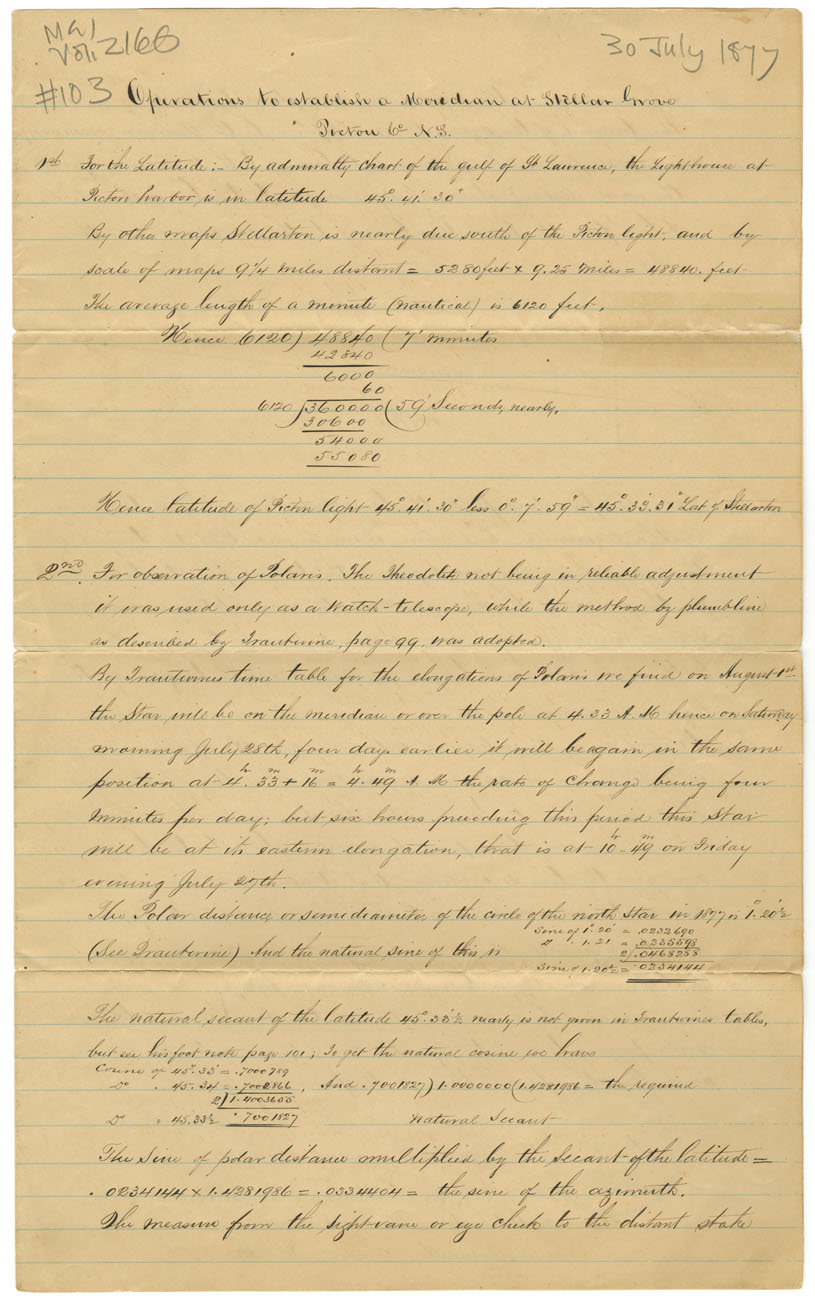 MG1
Vol. 2166
30 July 1877
#103
Operations to establish a Meridian at Stellar Grove
Pictou Co N.S.
1st For the Latitude:- By admiralty chart of the gulf of St Lawrence, the Lighthouse at
Pictou harbor is in latitude 45°. 41'. 30"
By other maps Stellarton is nearly due south of the Pictou light, and by
scale of maps 9 1/4 miles distant = 5280 feet x 9.25 miles = 48840. feet
The average length of a minute (nautical) is 6120 feet.
Hence 6120) 48840 (7' minutes
42840
6000
60
6120 )360000(59" Seconds, nearly.
30600
54000
55080
Hence latitude of Pictou light 45°. 41'. 30" less 0°. 7'. 59" = 45°. 33'. 31" Lat of Stellarton
2nd. For observation of Polaris. The Theodolite not being in reliable adjustment
it was used only as a watch-telescope, while the method by plumbline
as described by Trautwine, page 99, was adopted.
By Trautwines time table for the elongations of Polaris we find on August 1st
the Star will be on the meridian or over the pole at 4.33 A.M hence on Saturday
morning July 28th, four days earlier it will be again in the same
position at 4h. 33m + 16m = 4h. 49m A.M the rate of change being four
minutes per day; but six hours preceding this period this Star
will be at its eastern elongation, that is at 10h-49m on Friday
evening July 27th.
The Polar distance or semediameter of the circle of the north Star in 1877 is 1°. 20'½
(See Trautwine) And the natural sine of this is
Sine of 1°. 20' = .0232690
Do 1. 1.21 = .0235598
2).0468288
Sine of 1.20½ = .0234144
The natural secant of the latitude 45°. 33'½ nearly is not given in Trautwines tables,
but see his foot note page 101; To get the natural cosine we have
Cosine of 45°. 33' = .7000789
Do " 45.34 = .7002866, And .7001827)1.0000000(1.4281986 = the required
2)1.4003655
Do " 45.33½ .7001827 Natural Secant
The Sine of polar distance multiplied by the Secant of the latitude =
.0234144 x 1.4281986 = .0334404 = the sine of the azimuth.
The measure from the sight vane or eye check to the distant stake